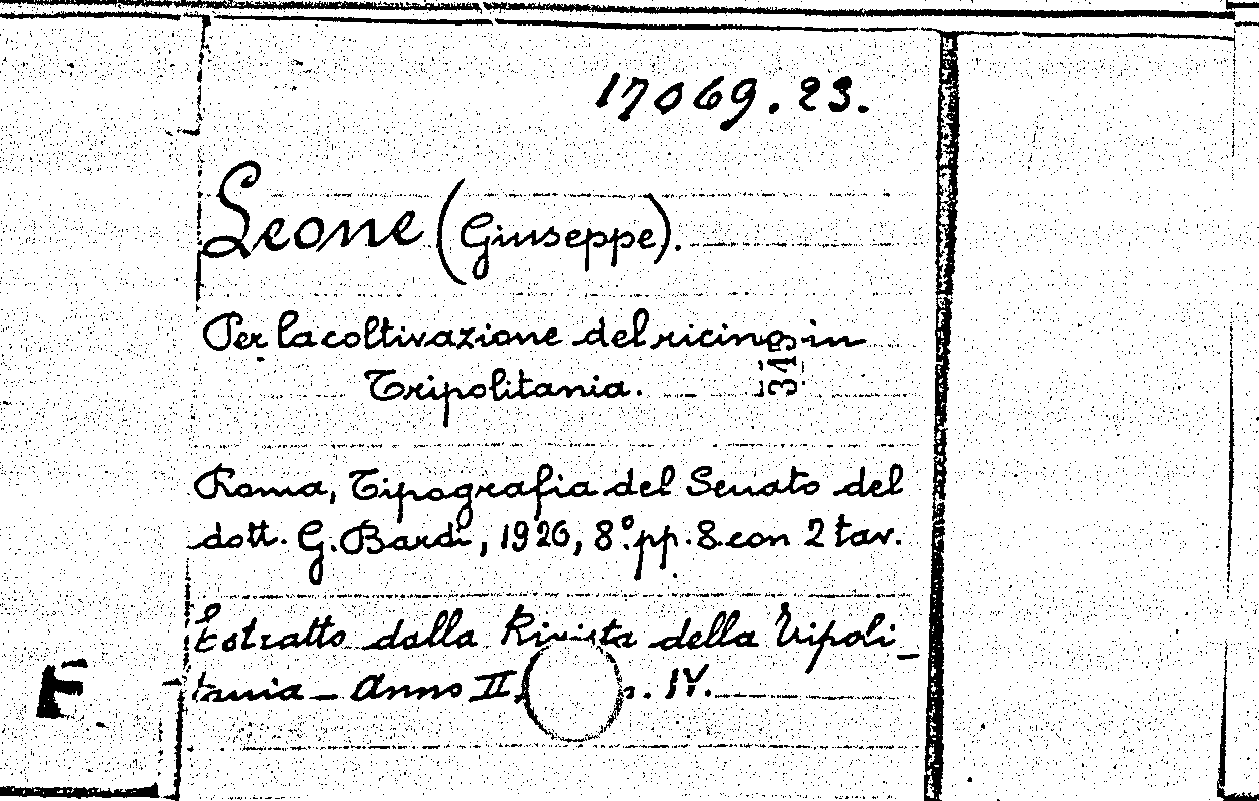 17069.23.
Leone (Giuseppe).
Per la coltivazione del ricino in
Tripolitania.
343
Roma, Tipografia del Senato del
dott. G. Bardi, 1926, 8º. pp. 8 con 2 tav.
Estratto dalla Rivista della Tripoli_
tania _ Anno II, . IV.
F